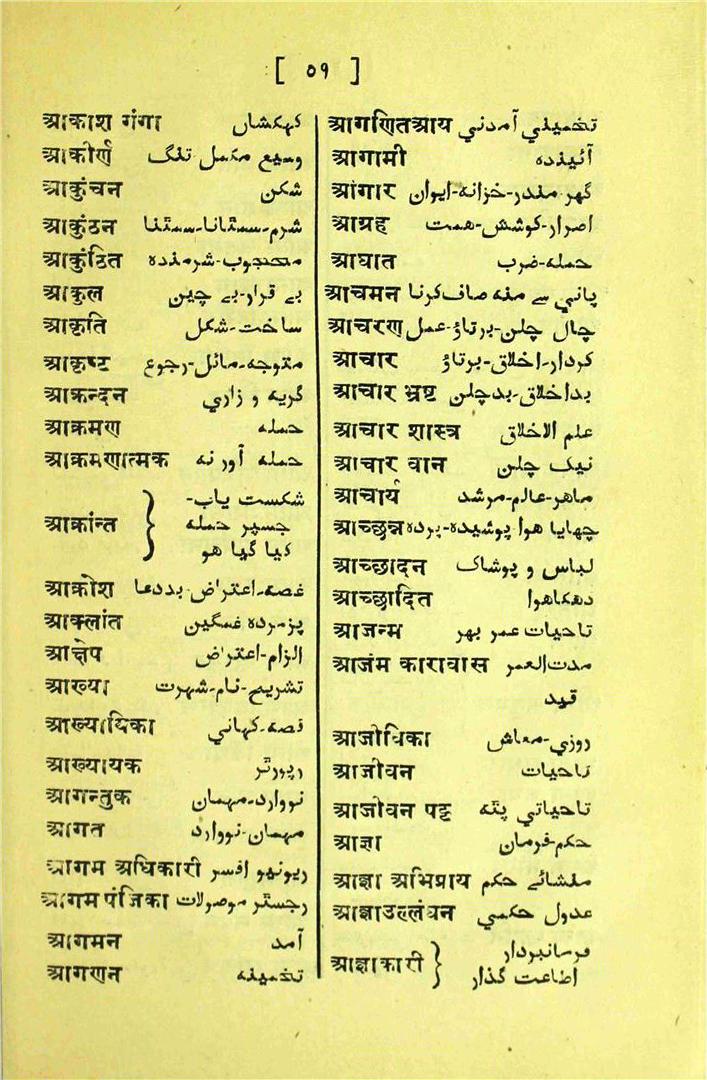 [ ٥٩ ]
आकाश गंगा کہکشاں
आकीर्ण وسیع مکمل تنگ
आकुंचन شکن
आकुंठन شرم-سمٹانا-سمٹنا
आकुंठित محجوب-شرمندہ
आकुल بے قرار-بے چین
आकृति ساخت-شکل
आकृष्ट متوجہ-مائل-رجوع
आक्रन्दन گریہ و زاري
आक्रमण حملہ
आक्रमणात्मक حملہ آور نہ
आक्रांत } شکست یاب-
جسپر حملہ
کیا گیا ہو
आक्रोश غصہ-اعتراض-بددعا
आक्लांत پزمردہ غمگین
आक्षेप الزام-اعتراض
आख्या تشریح-نام-شہرت
आख्यायिका قصہ-کہاني
आख्यायक رپورٹر
आगन्तुक نووارد-مہمان
आगत مہمان-نووارد
आगम अधिकारी ریونیو افسر
आगम पंजिका رجسٹر موصولات
आगमन آمد
आगणन تخمینہ
आगणितआय تخمیني آمدني
आगामी آئیندہ
आगार گھر-مندر-خزانہ-ایوان
आग्रह اصرار-کوشش-ہمت
आघात حملہ-ضرب
आचमन پاني سے منہ صاف کرنا
आचरण چال چلن-برتاؤ-عمل
आचार کردار-اخلاق-برتاؤ
आचार भ्रष्ट بداخلاق-بدچلن
आचार शास्त्र علم الاخلاق
आचार वान نیک چلن
आचार्य ماہر-عالم-مرشد
आच्छन्न چھایا ہوا پوشیدہ-پردہ
आच्छादन لباس و پوشاک
आच्छादित دھکاہوا
आजन्म تاحیات عمر بھر
आजंम कारावास مدت العمر
قید
आजीविका روزي-معاش
आजीवन تاحیات
आजीवन पट्ट تاحیاتي پٹہ
आज्ञा حکم-فرمان
आज्ञा अभिप्राय منشائے حکم
आज्ञाउल्लंघन عدول حکمي
आज्ञाकारी } فرمانبردار
اطاعت گذار